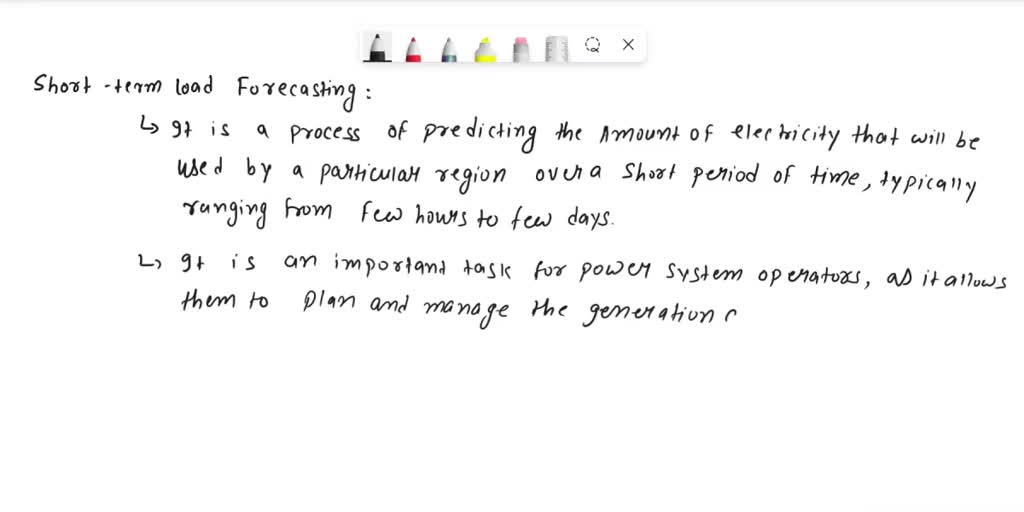 Short-term load Forecasting:
↳ It is a process of predicting the Amount of electricity that will be
used by a particular region over a short period of time, typically
ranging from few hours to few days.
↳ It is an important task for power system operators, as it allows
them to plan and manage the generation